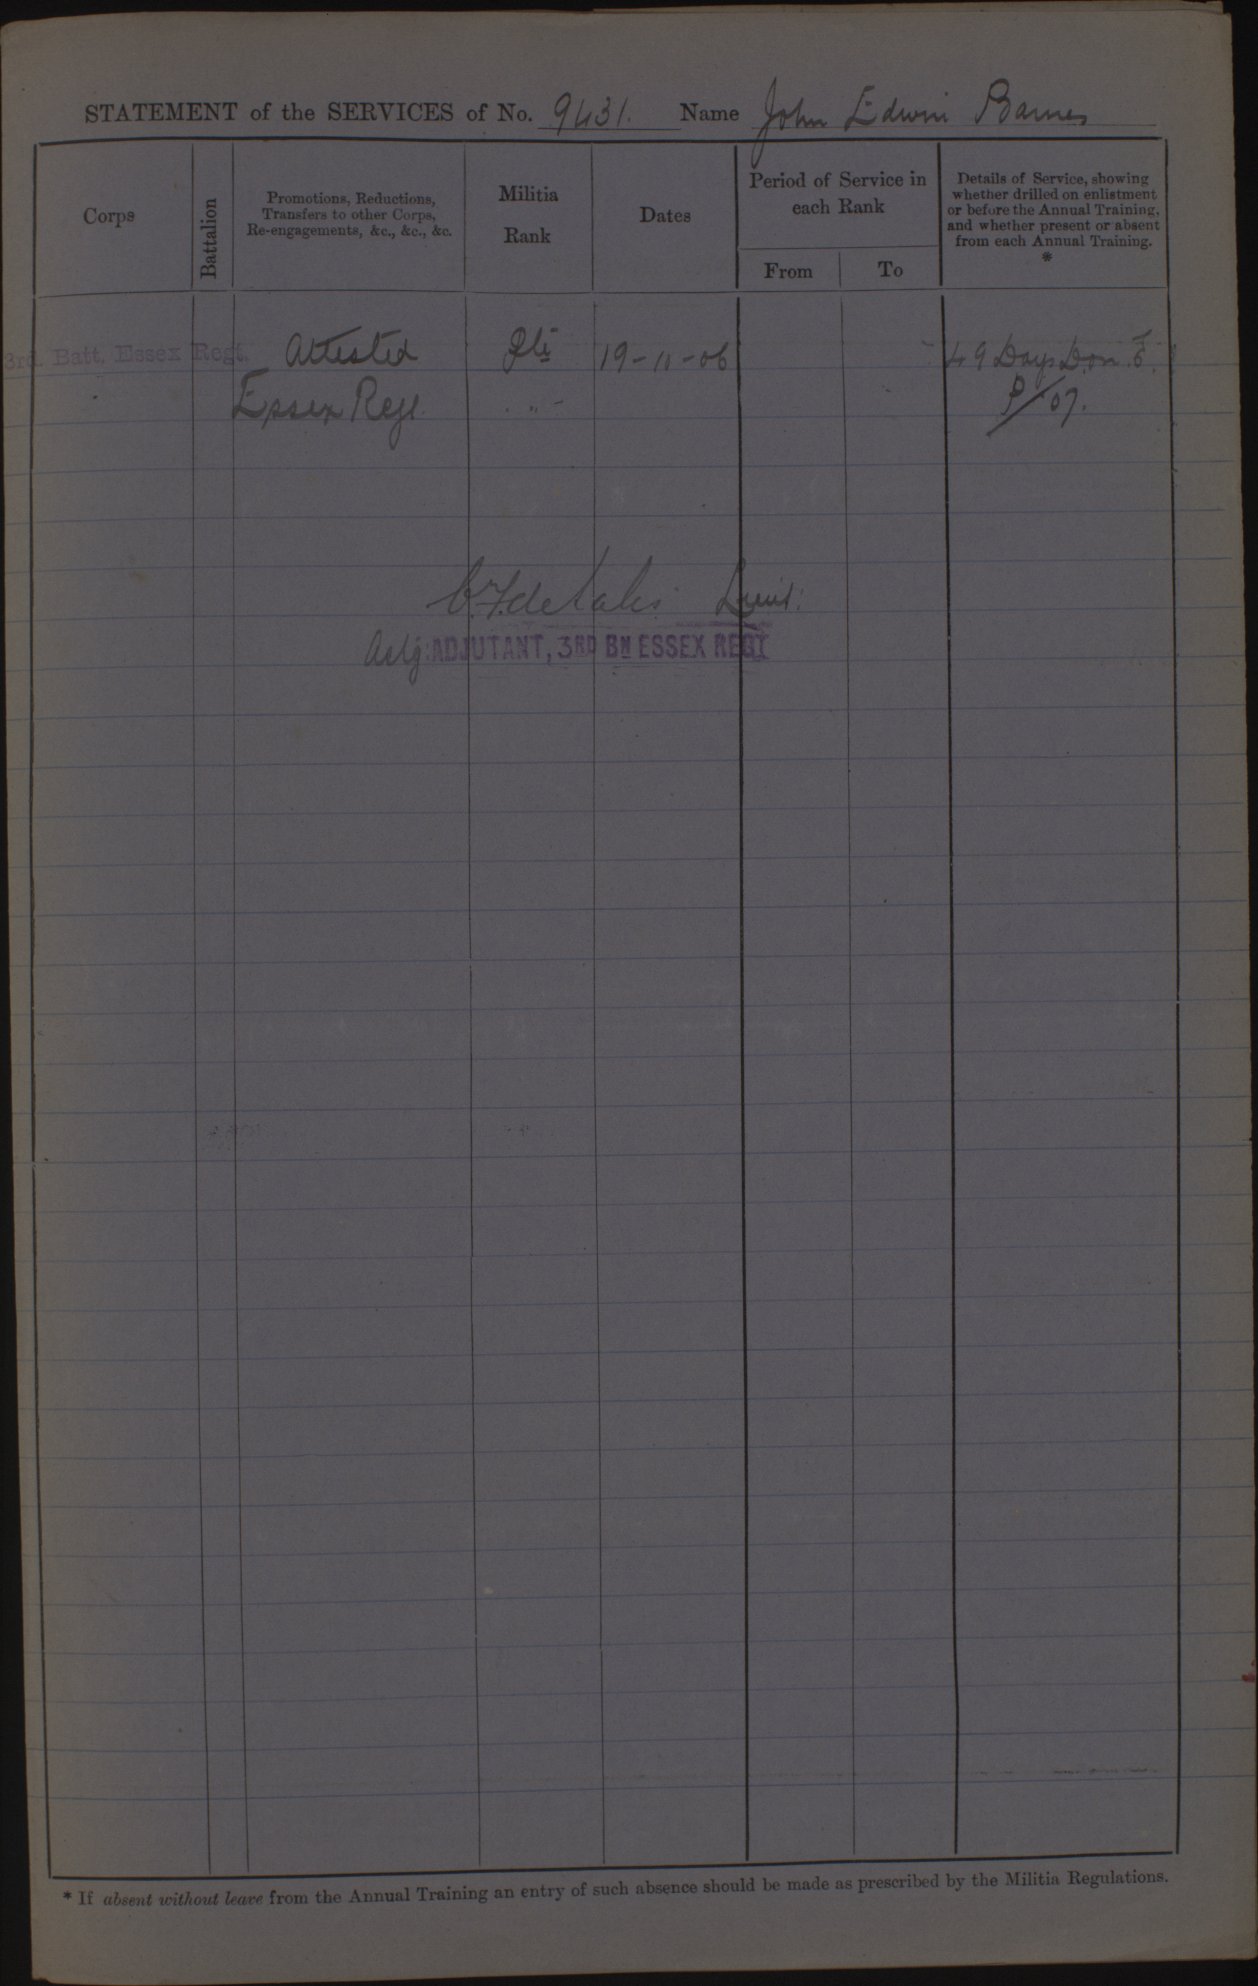 STATEMENT of the SERVICES of No. 9431. Name John Edwin Barnes
Corps
Battalion
Promotions, Reductions,
Transfers to other Corps,
Re-engagements, &c., &c., &c.
Militia
Rank
Dates
Period of Service in
each Rank
From
To
Details of Service, showing
whether drilled on enlistment
or before the Annual Training,
and whether present or absent
from each Annual Training.
*
3rd. Batt. Essex Regt. Attested Pte 19-11-06 49 Days D. on E.
Essex Regt. " P/07.
Lieut:
Adj: ADJUTANT, 3RD BN ESSEX REGT
* If absent without leave from the Annual Training an entry of such absence should be made as prescribed by the Militia Regulations.